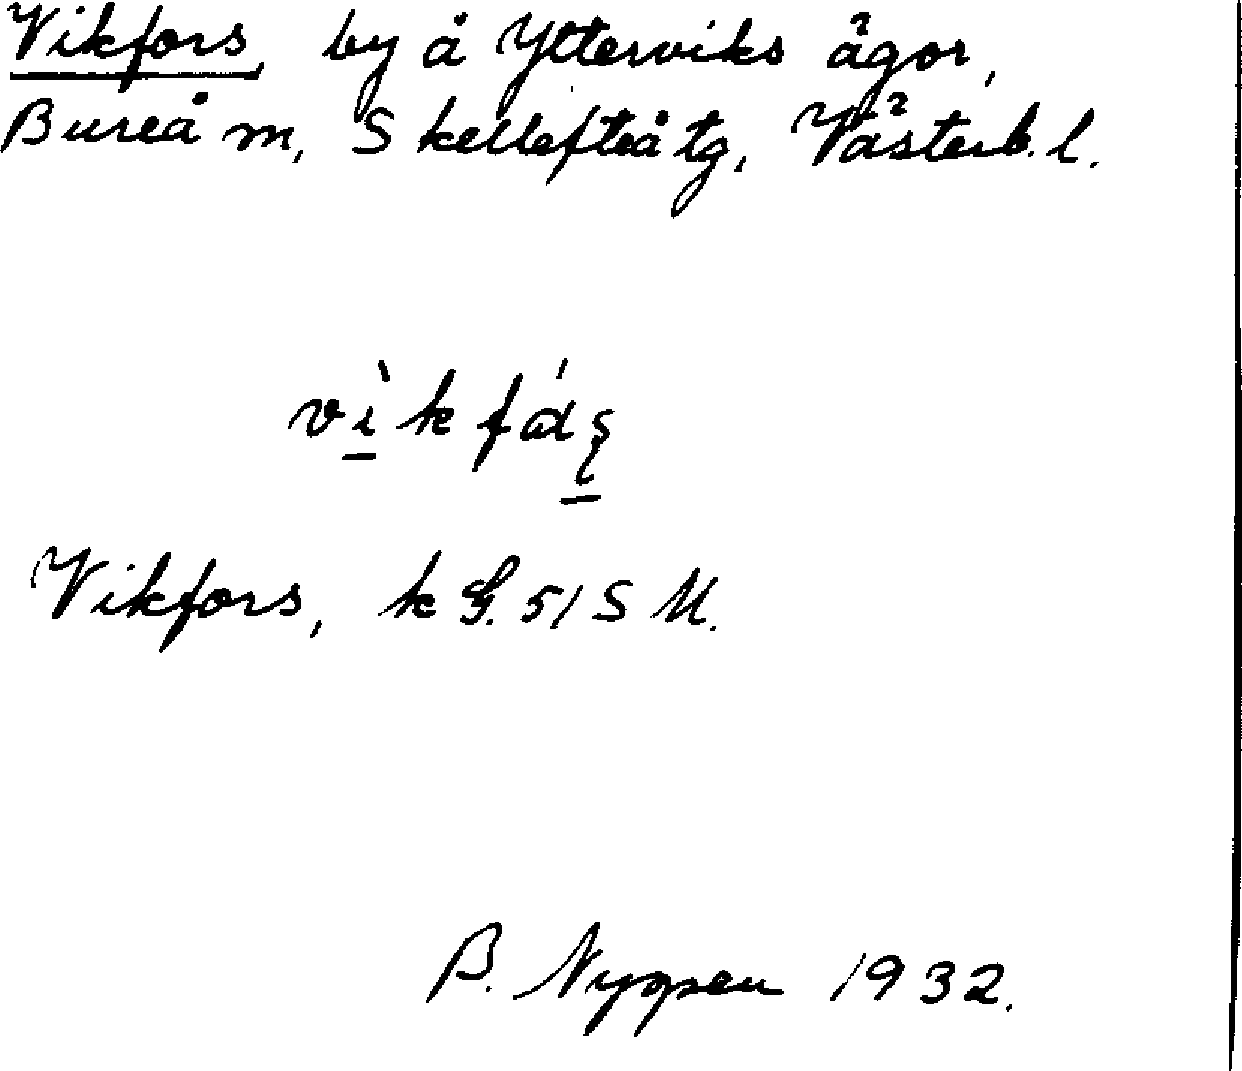 Vikfors, by å Ytterviks ägor,
Bureå m, Skellefteå tg, Västerb. l.
Vikfors, k G. 51 S M.
B. 1932.